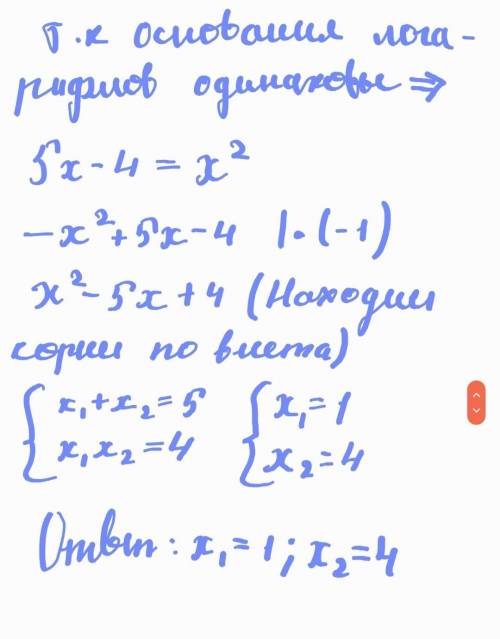 Т.к основания лога-
рифмов одинаковы ⇒
5x - 4 = x²
-x² + 5x - 4 |·(-1)
x² - 5x + 4 (Находим
корни по виета)
{ x₁ + x₂ = 5 { x₁ = 1
{ x₁ x₂ = 4 { x₂ = 4
Ответ: x₁ = 1; x₂ = 4